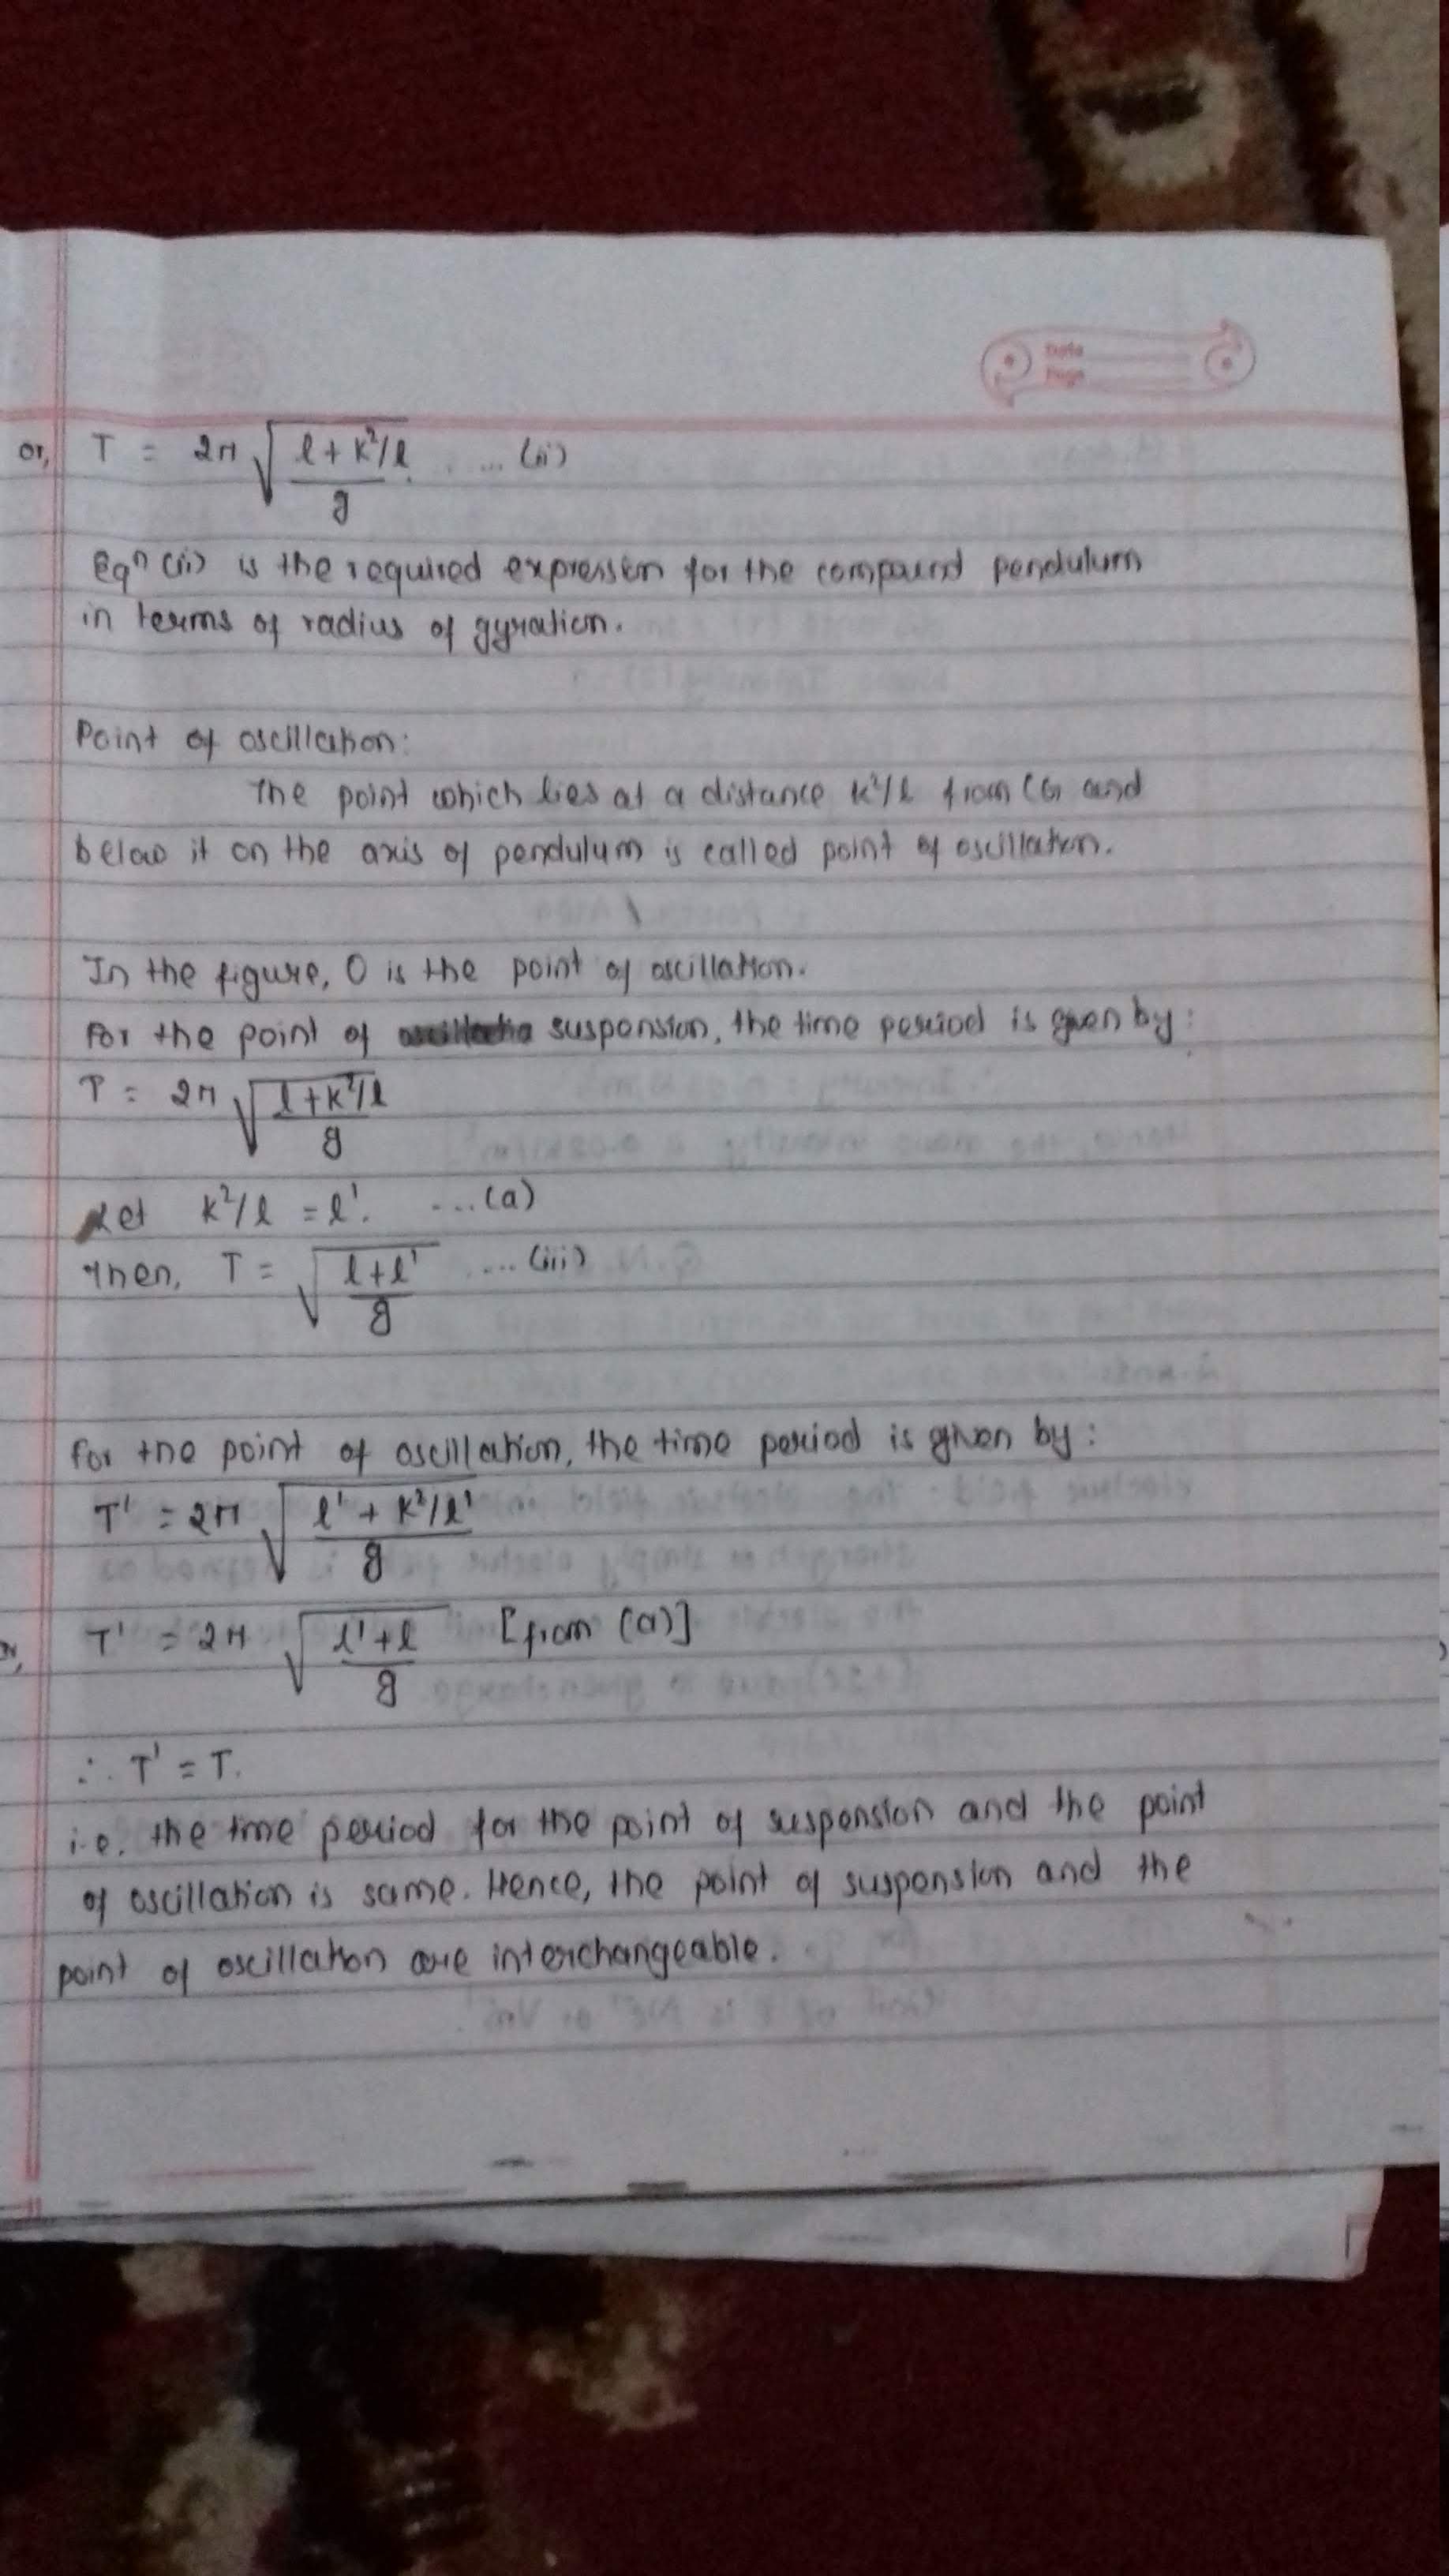 Date
Page
or, T = 2π √((l + k²/l)/g) .... (ii)
Eqⁿ (ii) is the required expression for the compound pendulum
in terms of radius of gyration.
Point of oscillation:
The point which lies at a distance k²/l from CG and
below it on the axis of pendulum is called point of oscillation.
In the figure, O is the point of oscillation.
For the point of suspension, the time period is given by:
T = 2π √((l+k²/l)/g)
Let k²/l = l'. ...(a)
Then, T = √((l+l')/g) ....(iii)
For the point of oscillation, the time period is given by:
T' = 2π √((l' + k²/l')/g)
T' = 2π √((l'+l)/g) [from (a)]
∴ T' = T.
i.e. the time period for the point of suspension and the point
of oscillation is same. Hence, the point of suspension and the
point of oscillation are interchangeable.